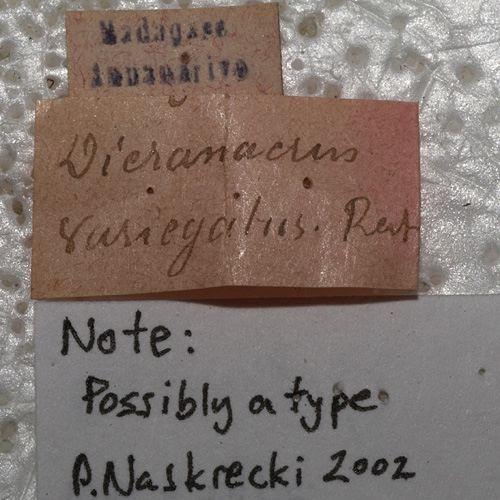 Madagasc
Dicranacrus
variegatus. Redt
Note:
Possibly a type
P. Naskrecki 2002